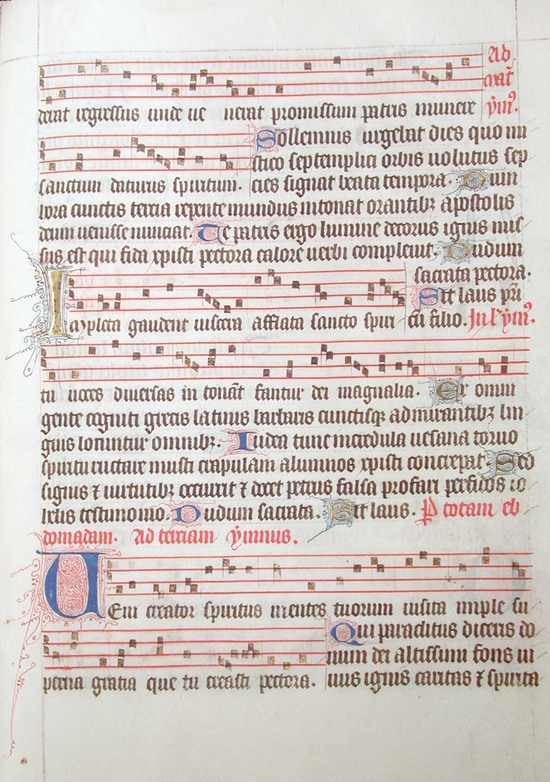 Ad
deiat regressus unde ue neiat promissum patris munere
ymn⁹.
Sollemnis urgebat dies quo mi
stico septemplici orbis uolutus sep
sanctum daturus spiritum. cies signat beata tempora. Dum
hora cunctis tercia repente mundus intonat orantibꝫ apostolis
deum uenisse nunciat. De patris ergo lumine decorus ignis almus
sus est qui fida xpisti pectora calore uerbi compleuit. Dudum
sacrata pectora.
Sit laus pri
Impleta gaudent uiscera afflata sancto spiri cū filio. In l ymn⁹.
tu uoces diuersas intonāt fantur dei magnalia. Ex omni
gente cogniti grecis latinis barbaris cunctisqꝫ admirantibꝫ lin
guis locuntur omnibꝫ. Iudea tunc incredula uesana toruo
spiritu ructare musti crapulam alumnos xpisti concrepat. Sed
signis ⁊ uirtutibꝫ occurrit ⁊ docet petrus falsa profari perfidos io
helis testimonio. Dudum sacrata. Sit laus. P totam eb
domadam. Ad terciam ymnus.
Ueni creator spiritus mentes tuorum uisita imple su
Qui paraclitus diceris do
num dei altissimi fons ui
perna gratia que tu creasti pectora. uus ignis caritas ⁊ spirita